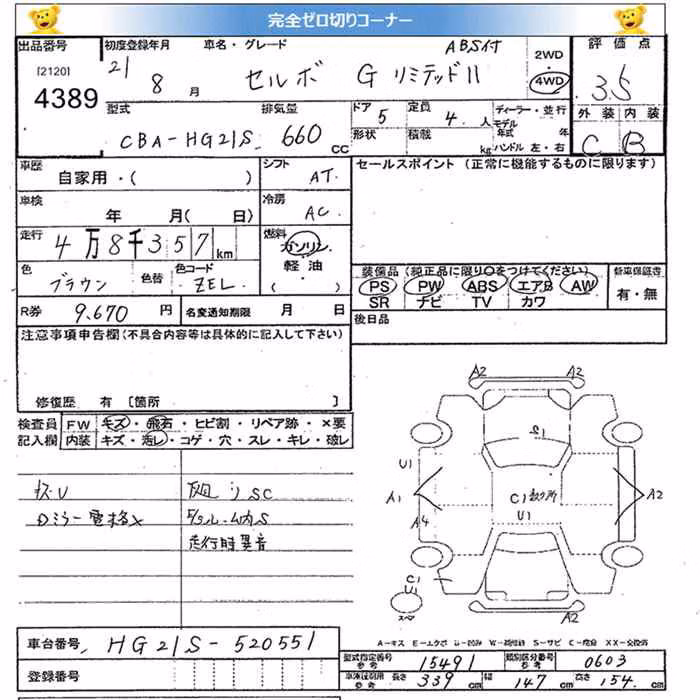 完全ゼロ切りコーナー
出品番号 初度登録年月 車名・グレード ABSイナ 2WD 評価点
[2120] 21 8月 セルボ G リミテッドII ・ 3.5
4389 4WD
型式 排気量 ドア 5 定員 4.人 ディーラー・並行 外装 内装
CBA-HG21S 660cc 形状 積載 kg モデル年式 年 C B
ハンドル 左・右
車歴 シフト セールスポイント (正常に機能するものに限ります)
自家用・( ) AT.
車検 年 月( 日) 冷房 AC.
走行 4万8千357km 燃料 ガソリン
色 ブラウン 色替 色コード ZEL. 軽油 装備品(純正品に限り○をつけてください) 新車保証書
(・) PS PW ABS エアB AW 有・無
SR ナビ TV カワ
R券 9.670円 名変通知期限 月 日 後日品
注意事項申告欄(不具合内容等は具体的に記入して下さい)
修復歴 有 [箇所 ]
検査員 FW キズ・飛石・ヒビ割・リペア跡・×要
記入欄 内装 キズ・汚レ・コゲ・穴・スレ・キレ・破レ
A2 A2
S1
U1
A1 C1 A2
U1
A4
C1
U1
スペア A2
キズU 下廻りSC
Dミラー電格×
走行時異音
A-キズ E-エクボ U-凹み W-補修跡 S-サビ C-腐食 XX-交換済
車台番号 HG21S-520551
型式指定番号 参考 15491 類別区分番号 参考 0603
登録番号 車検証記載 参考 長さ 339cm 幅 147cm 高さ 154.cm